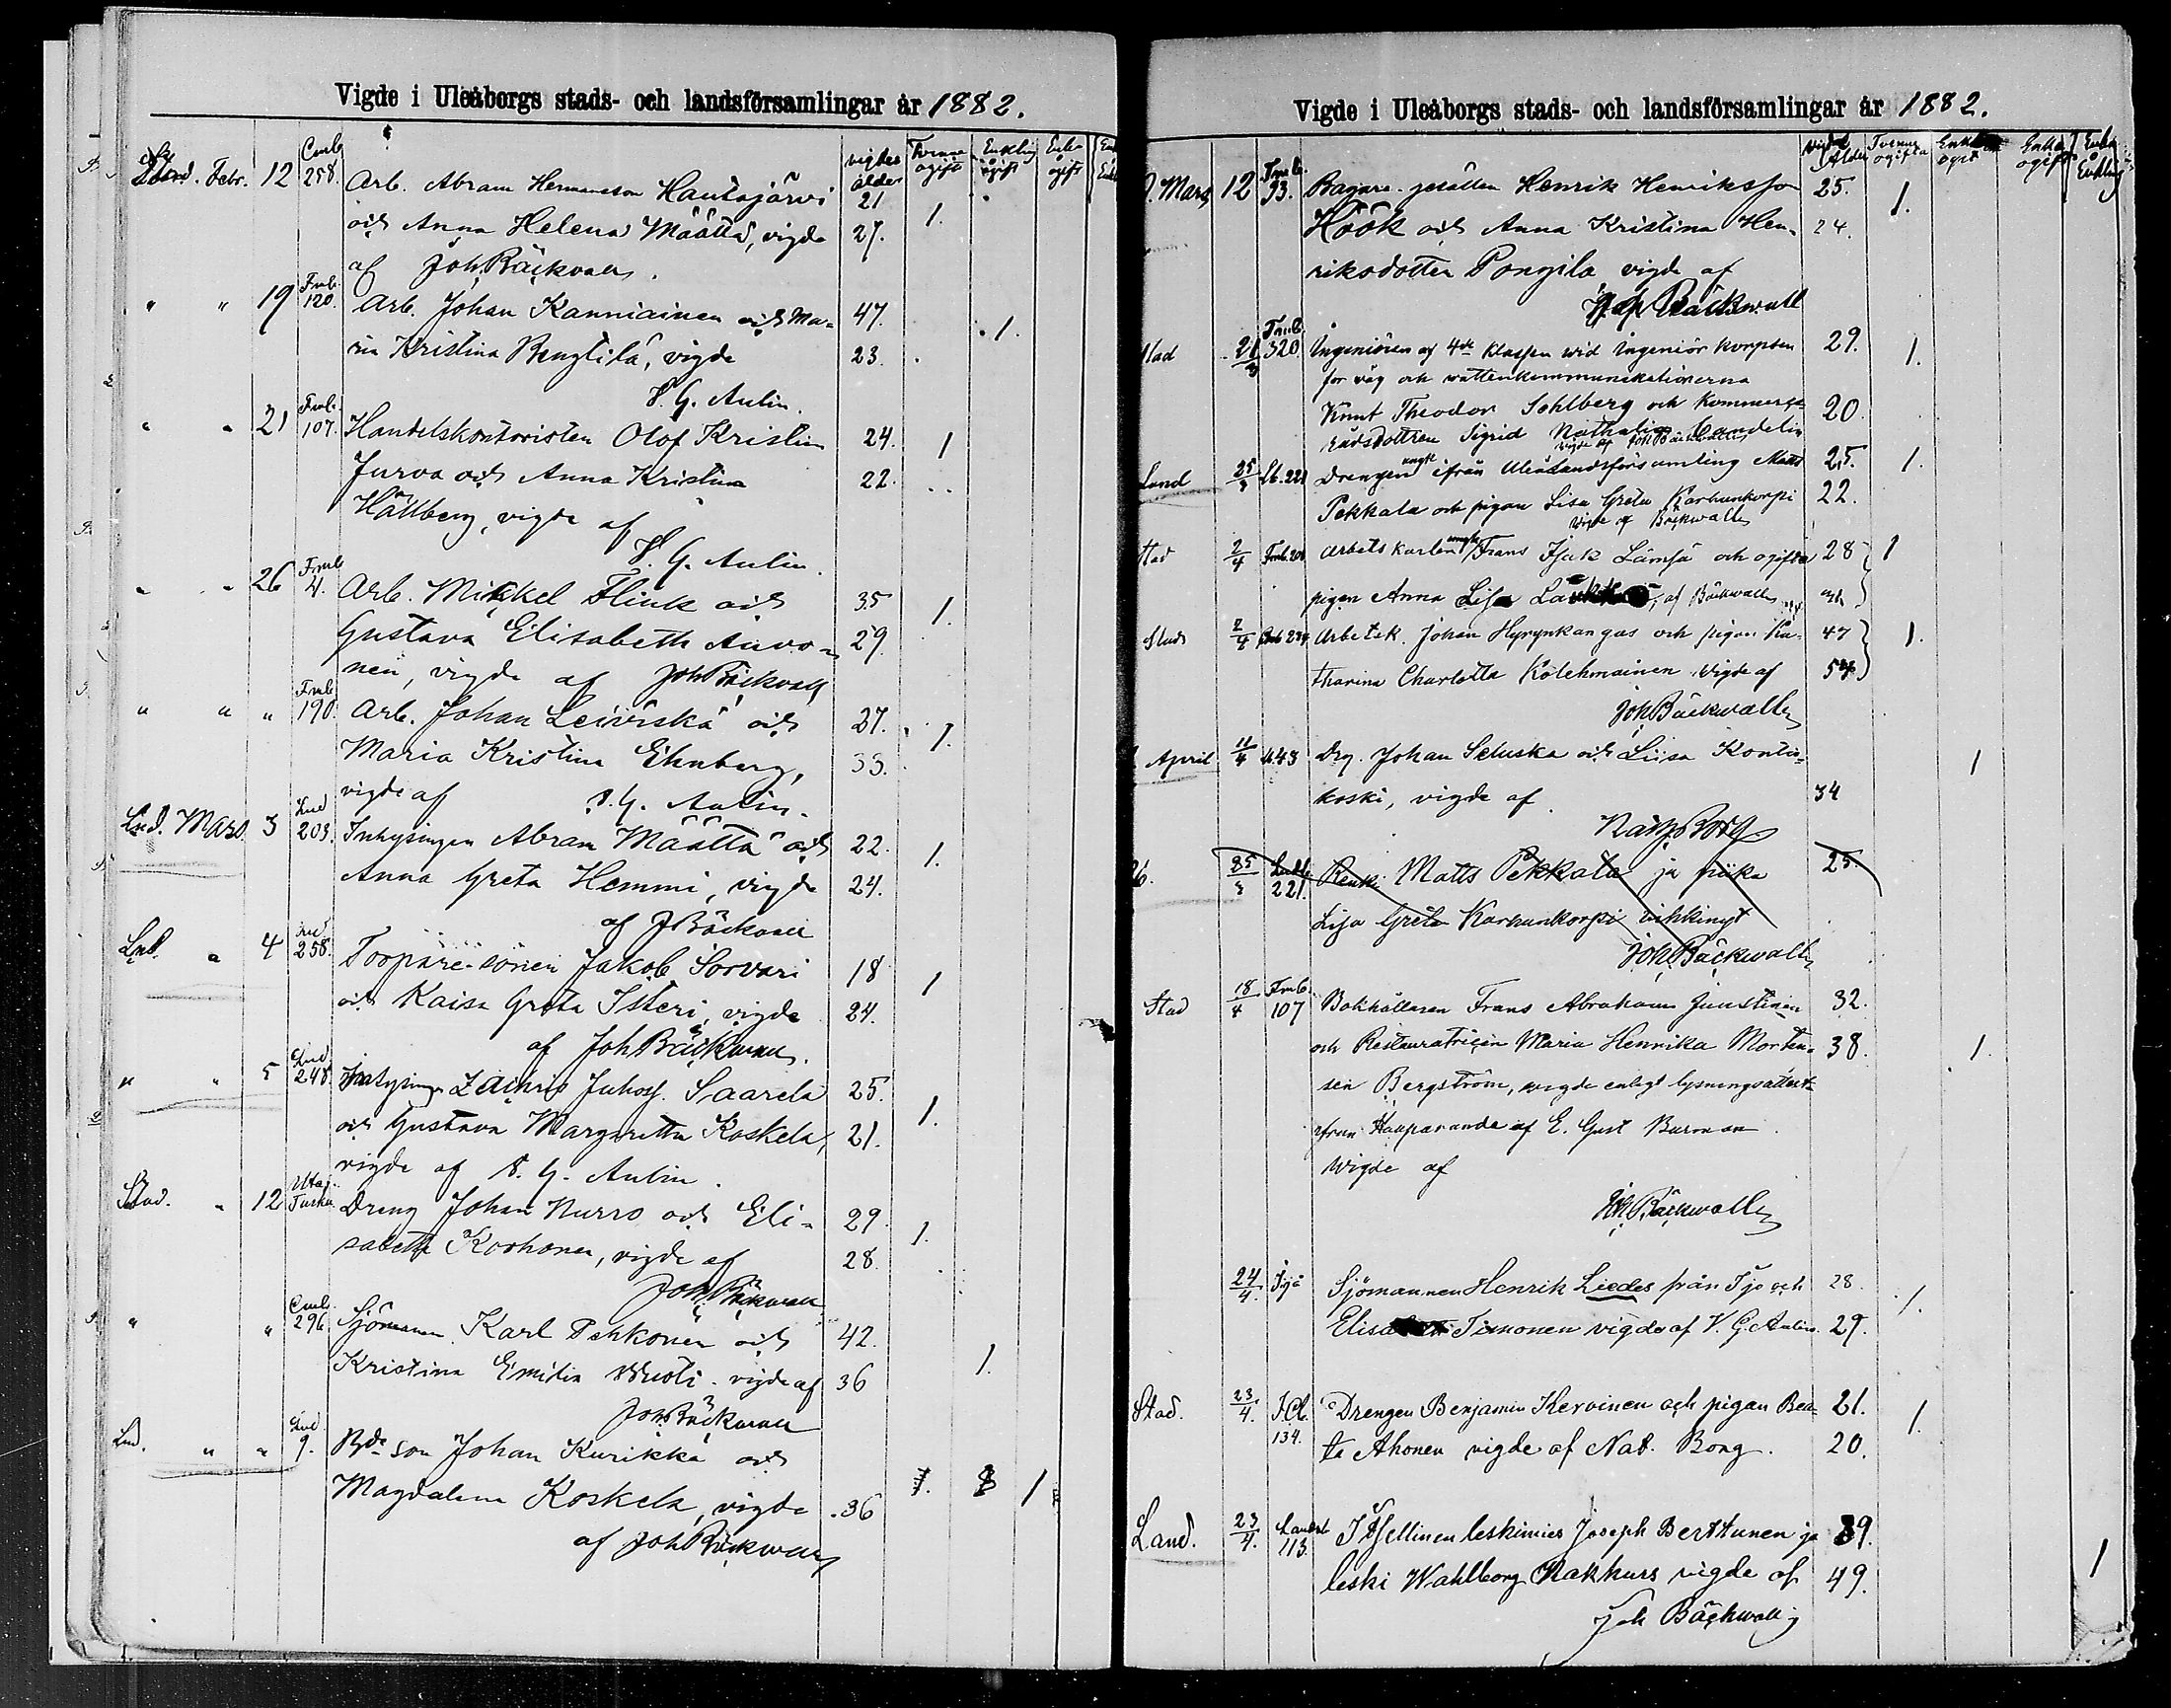 Vigde i Uleåborgs stads- och landsförsamlingar år 1882.
vigdes ålder Tvenne ogifta Enkling ogift Enka ogift
Febr. 12 Cmb. 258. Arb. Abram Hermansson Hautajärvi 21 1.
och Anna Helena Määttä, vigde 27.
af Joh. Bäckvall.
" " 19 Fmb. 120. Arb. Johan Kanniainen och Ma- 47. 1.
ria Kristina Bengtilä, vigde 23.
V. G. Aulin.
" " 21 Fmb. 107. Handelskontoristen Olof Kristian 24. 1
Jurva och Anna Kristina 22.
Hällberg, vigde af
V. G. Aulin.
" " 26 Fmb. 4. Arb. Mikkel Flink och 35 1.
Gustava Elisabeth Auvo- 29.
nen, vigde af Joh Bäckvall
" " " Fmb. 190. Arb. Johan Leiviskä och 27. 1.
Maria Kristina Ehnberg, 33.
vigde af V. G. Aulin.
Lnd. Mars 3 Lnd 203. Inhysingen Abram Määttä och 22. 1.
Anna Greta Hemmi, vigde 24.
af J Bäckvall
Lnd. " 4 Lnd 258. Torpare-sonen Jakob Sorvari 18 1
och Kaisa Greta Isteri, vigde 24.
af Joh Bäckvall.
" " 5 Lnd 248. Inhysing Zachris Juhoss. Saarela 25. 1.
och Gustava Margaretta Koskela, 21.
vigde af V. G. Aulin.
Stad. " 12 Utaj. Dreng Johan Nurro och Eli- 29. 1.
sabeth Korhonen, vigde af 28.
Joh. Bäckvall
" " Cmb. 296. Sjömannen Karl Pehkonen och 42. 1.
Kristina Emilia vigde af 36
Joh Bäckvall
Lnd. " " Lnd 9. Bde son Johan Kurikka och
Magdalena Koskela, vigde 36 1
af Joh Bäckvall
Vigde i Uleåborgs stads- och landsförsamlingar år 1882.
vigdes ålder Tvenne ogifta Enkling ogift Enka ogift Enka o Enkling
Mars 12 Fmb. 93. Bagare-gesällen Henrik Henriksson 25. 1.
Höök och Anna Kristina Hen- 24.
riksdotter Pongila vigde af
Joh Bäckwall
Stad 21/3 Fmb. 320. Ingeniören af 4de klassen wid Ingeniör korpsen 29. 1.
for väg och wattenkommunikationerna
Knut Theodor Sohlberg och Kommerse- 20.
rådsdottren Sigrid Nathalia Candelin
vigde af Joh Bäckwall
Land 25/3 Lb. 221 Drengen ungk ifrån Uleålandsförsamling Matts 25. 1.
Pekkala och pigan Lisa Greta Karhunkorpi 22.
vigde af Bäckwall
Stad 2/4 Fmb. 201 Arbetskarlen ungk Frans Isak Lämsä och ogifta 28 1
pigan Anna Lisa af Bäckwall
Stad 2/4 Arbetsk. Johan Hyrynkangas och pigan Ka- 47 1.
tharina Charlotta Kolehmainen. Vigde af
Joh Bäckwall
April 11/4 443 Drg. Johan Seluska och Liisa Kontio- 1
koski, vigde af 34
Nath. Borg
25/3 Landtb 221. Renki Matts Pekkala ja piika 25.
Lisa Greta Karhunkorpi vihkinyt
Joh. Bäckwall
Stad 18/4 Fmb. 107 Bokhållaren Frans Abraham Junstinen 32.
och Restauratricen Maria Henrika Morten- 38. 1.
sen Bergström, wigde enligt lysningsattest
ifrån Haaparanda af E. Gust Burman
Wigde af
Joh. Bäckwall
24/4. Ijo Sjömannen Henrik Liedes från Ijo och 28. 1.
Elisa Timonen vigde af V. G. Aulin. 29.
Stad. 23/4. 134. Drengen Benjamin Kervinen och pigan Bea- 21. 1.
ta Ahonen vigde af Nat. Borg. 20.
Land. 23/4. Landtb 113. Itsellinen leskimies Joseph Berttunen ja 39.
leski Wahlborg Rakkurs vigde af 49. 1
Joh Bäckwall